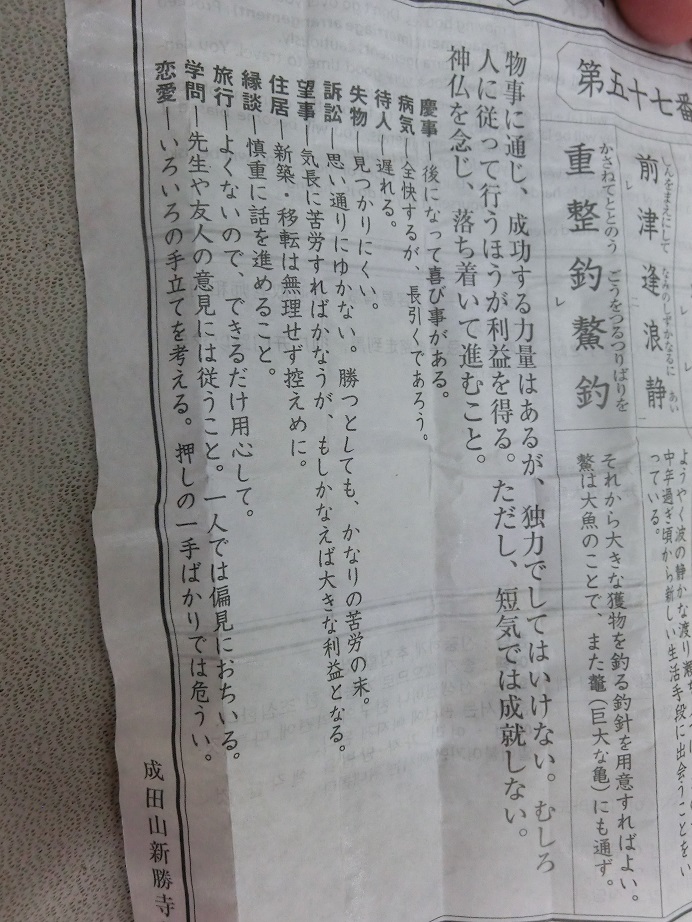 第五十七番
前津逢浪静
しんをまえにして なみのしずかなるに あい
重整釣鰲釣
かさねてととのう ごうをつるつりばりを
ようやく波の静かな渡り瀬
中年過ぎ頃から新しい生活手段に出会うことをい
っている。
それから大きな獲物を釣る釣針を用意すればよい。
鰲は大魚のことで、また鼇（巨大な亀）にも通ず。
物事に通じ、成功する力量はあるが、独力でしてはいけない。むしろ
人に従って行うほうが利益を得る。ただし、短気では成就しない。
神仏を念じ、落ち着いて進むこと。
慶事―後になって喜び事がある。
病気―全快するが、長引くであろう。
待人―遅れる。
失物―見つかりにくい。
訴訟―思い通りにゆかない。勝つとしても、かなりの苦労の末。
望事―気長に苦労すればかなうが、もしかなえば大きな利益となる。
住居―新築・移転は無理せず控えめに。
縁談―慎重に話を進めること。
旅行―よくないので、できるだけ用心して。
学問―先生や友人の意見には従うこと。一人では偏見におちいる。
恋愛―いろいろの手立てを考える。押しの一手ばかりでは危うい。
成田山新勝寺